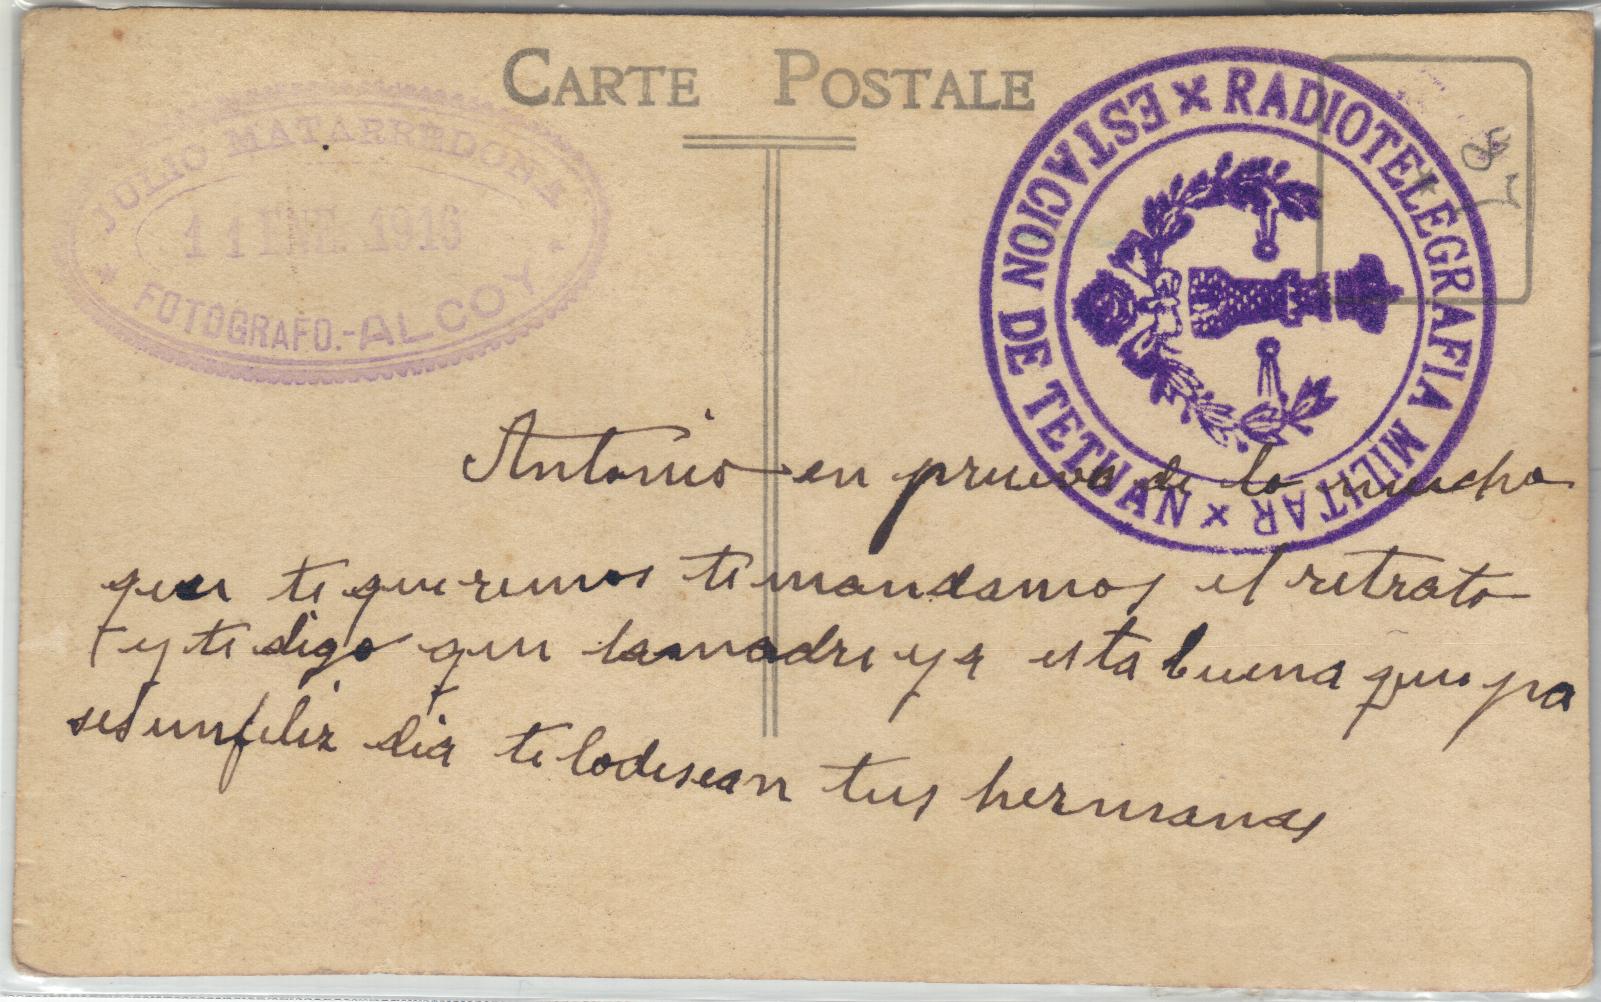 CARTE POSTALE
JULIO MATARREDONA
11 ENE. 1916
FOTOGRAFO.-ALCOY
RADIOTELEGRAFIA MILITAR
ESTACION DE TETUAN
Antonio en prueva de lo mucho
que te queremos te mandamos el retrato
y te digo que la madre ya esta buena que pa
ses un feliz dia te lo desean tus hermanas